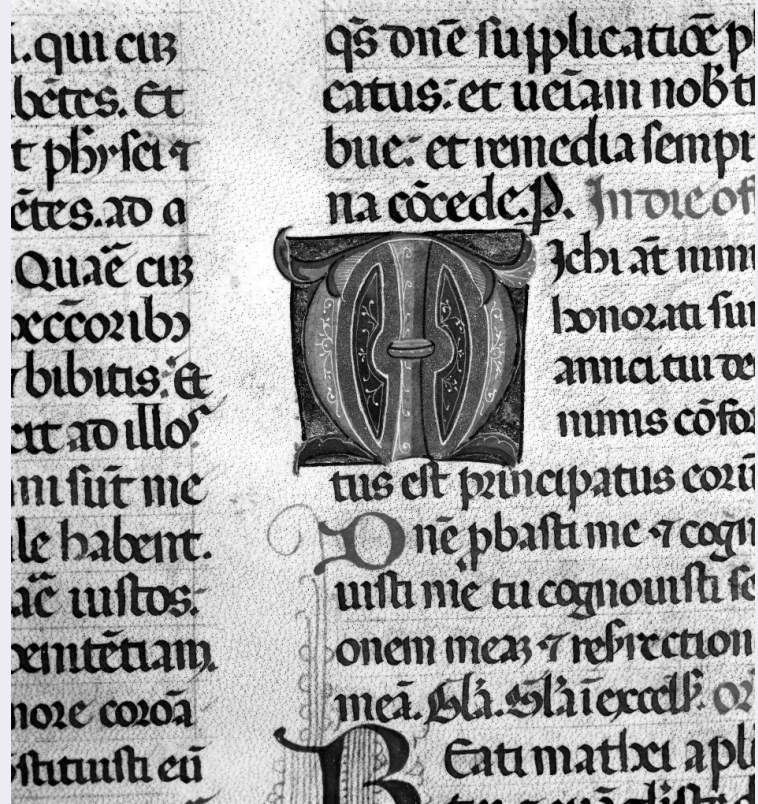 .qui cuȝ
bētes. Et
t phỹsei ⁊
ētes. ad a
.Quaē cuȝ
bibitis: Et
ad illoꝝ
sūt me
le habent.
ac̄ iustos:
penitētiam.
more coroā
stituisti eū
qs̄ dn̄e supplicatiōe pl
catus: et ueīam nob̄ t
bue: et remedia sempi
na cōcede. P. In die of
Michi at̄ nim
honorati sun
amici tui de
nimis cōfor
tus est principatus eorū
Dn̄e ꝓbasti me ⁊ cogn
uisti me tu cognouisti se
onem meaȝ ⁊ resr̄rection
meā. Gl̄a. Gl̄a ī excelẜ. or
Beati mathei apl̄i